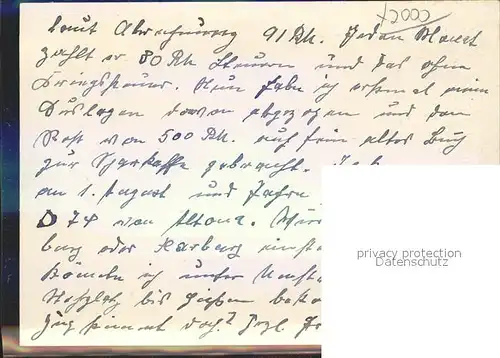 C000
laut Abrechnung 91 Rh. Jeden Monat
zahlt er 80 Rh Steuern und das ohne
Kriegssteuer. Nun habe ich erst mein
Auslagen davon abgezogen und den
Rest von 500 Rh. auf sein altes Buch
zur Sparkasse gebracht.
am 1. August und fahre
D 74 von Altona.
burg oder Harburg
könnte ich unter
bis Gießen
Zug stimmt doch? Hrzl.
privacy protection
Datenschutz